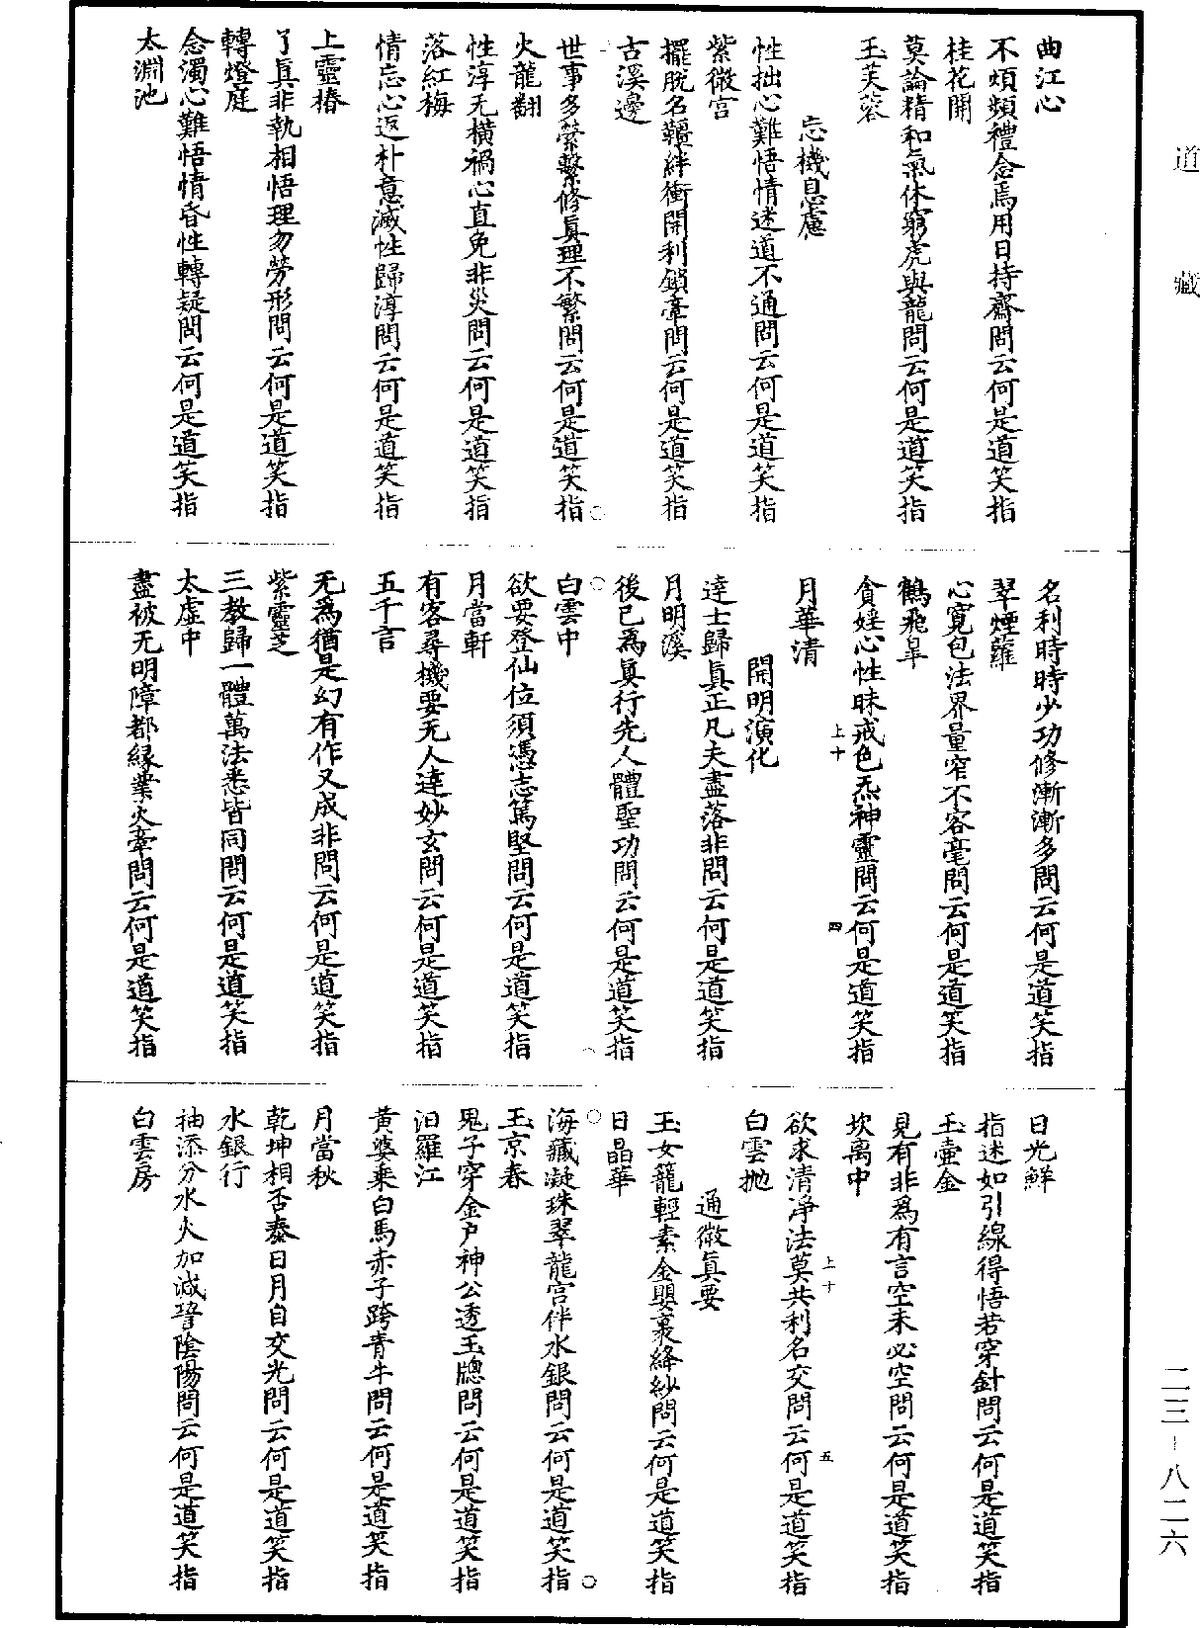 道藏
曲江心
不煩頻禮念焉用日持齋問云何是道笑指
桂花開
莫論精和氣休窮虎與龍問云何是道笑指
玉芙蓉
忘機息慮
性拙心難悟情迷道不通問云何是道笑指
紫微宮
擺脫名韁絆衝開利鎖牽問云何是道笑指
古溪邊
世事多縈繫修眞理不繁問云何是道笑指
火龍翻
性淳无橫禍心直免非災問云何是道笑指
落紅梅
情忘心返朴意滅性歸淳問云何是道笑指
上靈椿
了眞非執相悟理勿勞形問云何是道笑指
轉燈庭
念濁心難悟情昏性轉疑問云何是道笑指
太淵池
名利時時少功修漸漸多問云何是道笑指
翠煙蘿
心寬包法界量窄不容毫問云何是道笑指
鶴飛皐
貪婬心性昧戒色炁神靈問云何是道笑指
上十 四
月華清
開明演化
達士歸眞正凡夫盡落非問云何是道笑指
月明溪
後己爲眞行先人體聖功問云何是道笑指
白雲中
欲要登仙位須憑志篤堅問云何是道笑指
月當軒
有客尋機要无人達妙玄問云何是道笑指
五千言
无爲猶是幻有作又成非問云何是道笑指
紫靈芝
三教歸一體萬法悉皆同問云何是道笑指
太虛中
盡被无明障都緣業火牽問云何是道笑指
日光鮮
指迷如引線得悟若穿針問云何是道笑指
玉壺金
見有非爲有言空未必空問云何是道笑指
坎离中
欲求清淨法莫共利名交問云何是道笑指
上十 五
白雲抛
通微眞要
玉女籠輕素金嬰裹絳紗問云何是道笑指
日晶華
海藏凝珠翠龍宮伴水銀問云何是道笑指
玉京春
鬼子穿金戶神公透玉牕問云何是道笑指
汨羅江
黃婆乘白馬赤子跨青牛問云何是道笑指
月當秋
乾坤相否泰日月自交光問云何是道笑指
水銀行
抽添分水火加減聟陰陽問云何是道笑指
白雲房
二三-八二六